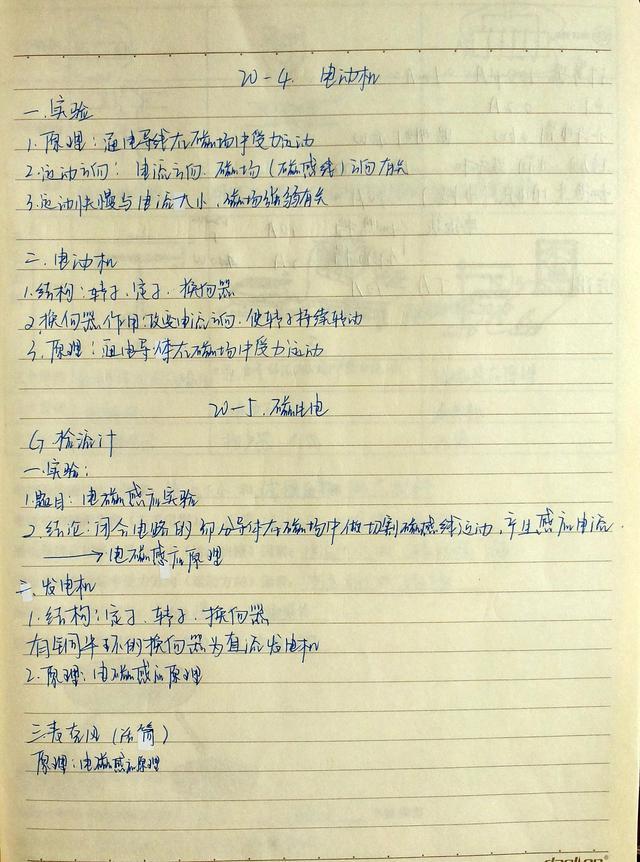 20-4. 电动机
一.实验
1.原理:通电导线在磁场中受力运动
2.运动方向:电流方向.磁场(磁感线)方向有关
3.运动快慢与电流大小、磁场强弱有关
二.电动机
1.结构:转子.定子.换向器
2.换向器作用改变电流方向.使转子持续转动
3.原理:通电导体在磁场中受力运动
20-5.磁生电
G 检流计
一.实验:
1.题目:电磁感应实验
2.结论:闭合电路的部分导体在磁场中做切割磁感线运动,产生感应电流.
→电磁感应原理
二.发电机
1.结构:定子.转子.换向器
有铜半环的换向器为直流发电机
2.原理:电磁感应原理
三.麦克风(话筒)
原理:电磁感应原理